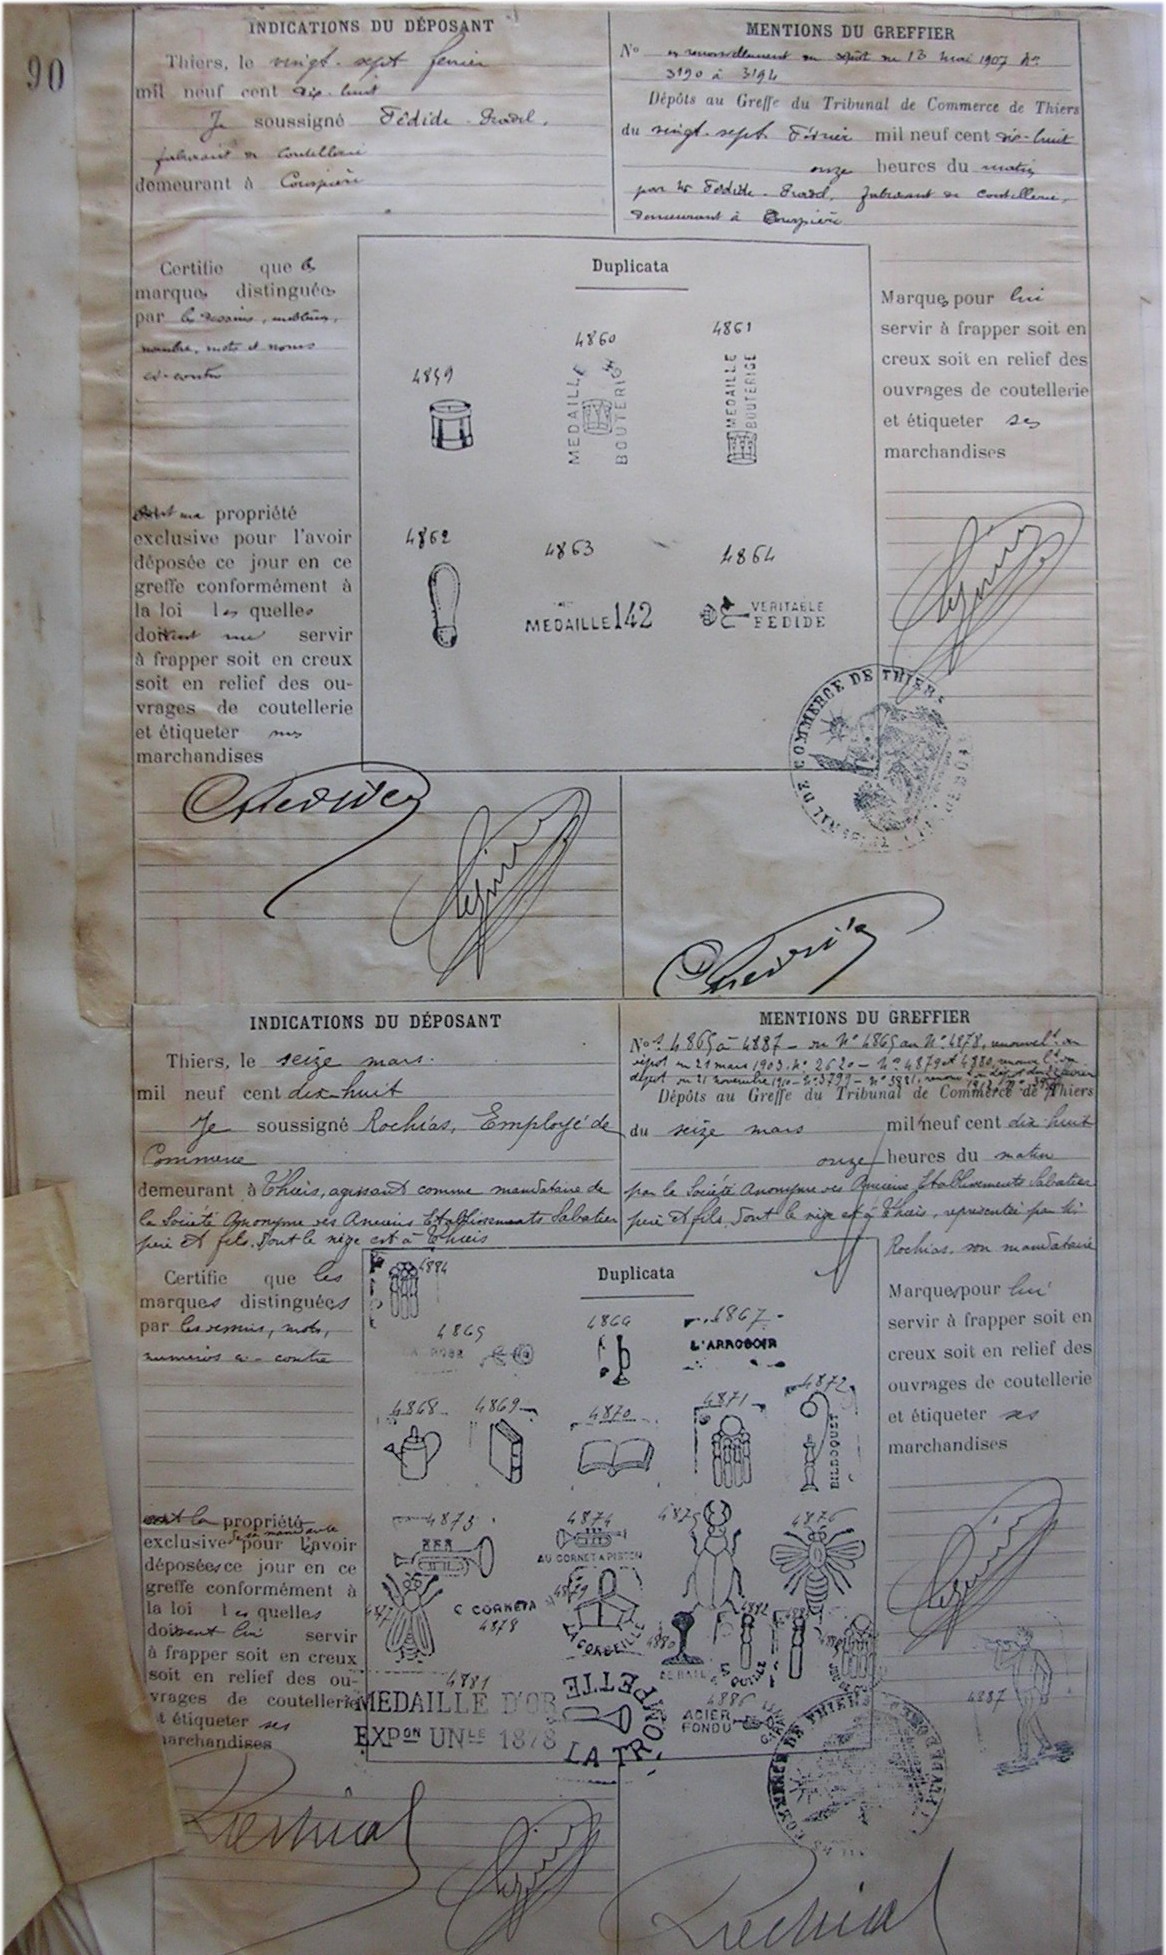 90
INDICATIONS DU DÉPOSANT
Thiers, le vingt-sept février
mil neuf cent dix-huit
Je soussigné Fédide-Pradel,
fabricant de coutellerie
demeurant à Courpière
MENTIONS DU GREFFIER
N° en renouvellement du dépôt du 13 mai 1907 Nos
3190 à 3194
Dépôts au Greffe du Tribunal de Commerce de Thiers
du vingt-sept Février mil neuf cent dix-huit
onze heures du matin
par Mr Fédide-Pradel, fabricant de coutellerie,
demeurant à Courpière
Certifie que les
marques distinguées
par les dessins, emblèmes,
nombre, mots et noms
ci-contre
sont ma propriété
exclusive pour l'avoir
déposée ce jour en ce
greffe conformément à
la loi les quelles
doivent me servir
à frapper soit en creux
soit en relief des ou-
vrages de coutellerie
et étiqueter mes
marchandises
Duplicata
4859
4860
MEDAILLE
BOUTERIGE
4861
MEDAILLE
BOUTERIGE
4862
4863
MEDAILLE 142
4864
VERITABLE
FEDIDE
Marques pour lui
servir à frapper soit en
creux soit en relief des
ouvrages de coutellerie
et étiqueter ses
marchandises
COMMERCE DE THIERS
INDICATIONS DU DÉPOSANT
Thiers, le seize mars
mil neuf cent dix-huit
Je soussigné Rochias, Employé de
Commerce
demeurant à Thiers, agissant comme mandataire de
la Société Anonyme des Anciens Etablissements Sabatier
père et fils, dont le siège est à Thiers
MENTIONS DU GREFFIER
Nos 4865 à 4887 – du N° 4865 au N° 4878, renouvelt du
dépôt du 21 mars 1903, N° 2620 – Nos 4879 et 4880, renouvelt du
dépôt du 21 novembre 1910 – N° 3799 –
Dépôts au Greffe du Tribunal de Commerce de Thiers
du seize mars mil neuf cent dix huit
onze heures du matin
par la Société Anonyme des Anciens Etablissements Sabatier
père et fils, dont le siège est à Thiers, représentée par Mr
Rochias, son mandataire
Certifie que les
marques distinguées
par les dessins, mots,
numéros ci-contre
sont la propriété
exclusive de sa mandante pour l'avoir
déposées ce jour en ce
greffe conformément à
la loi les quelles
doivent lui servir
à frapper soit en creux
soit en relief des ou-
vrages de coutellerie
et étiqueter ses
marchandises
Duplicata
4884
4865
4866
4867
L'ARROSOIR
4868
4869
4870
4871
4872
BILBOQUET
4873
4874
AU CORNET A PISTON
4875
4876
4877
C CORNETA
4878
4879
LA CORBEILLE
4880
4882
4881
MEDAILLE D'OR
EXPON UNLE 1878
LA TROMPETTE
4886
ACIER
FONDU
4887
Marques pour lui
servir à frapper soit en
creux soit en relief des
ouvrages de coutellerie
et étiqueter ses
marchandises
COMMERCE DE THIERS